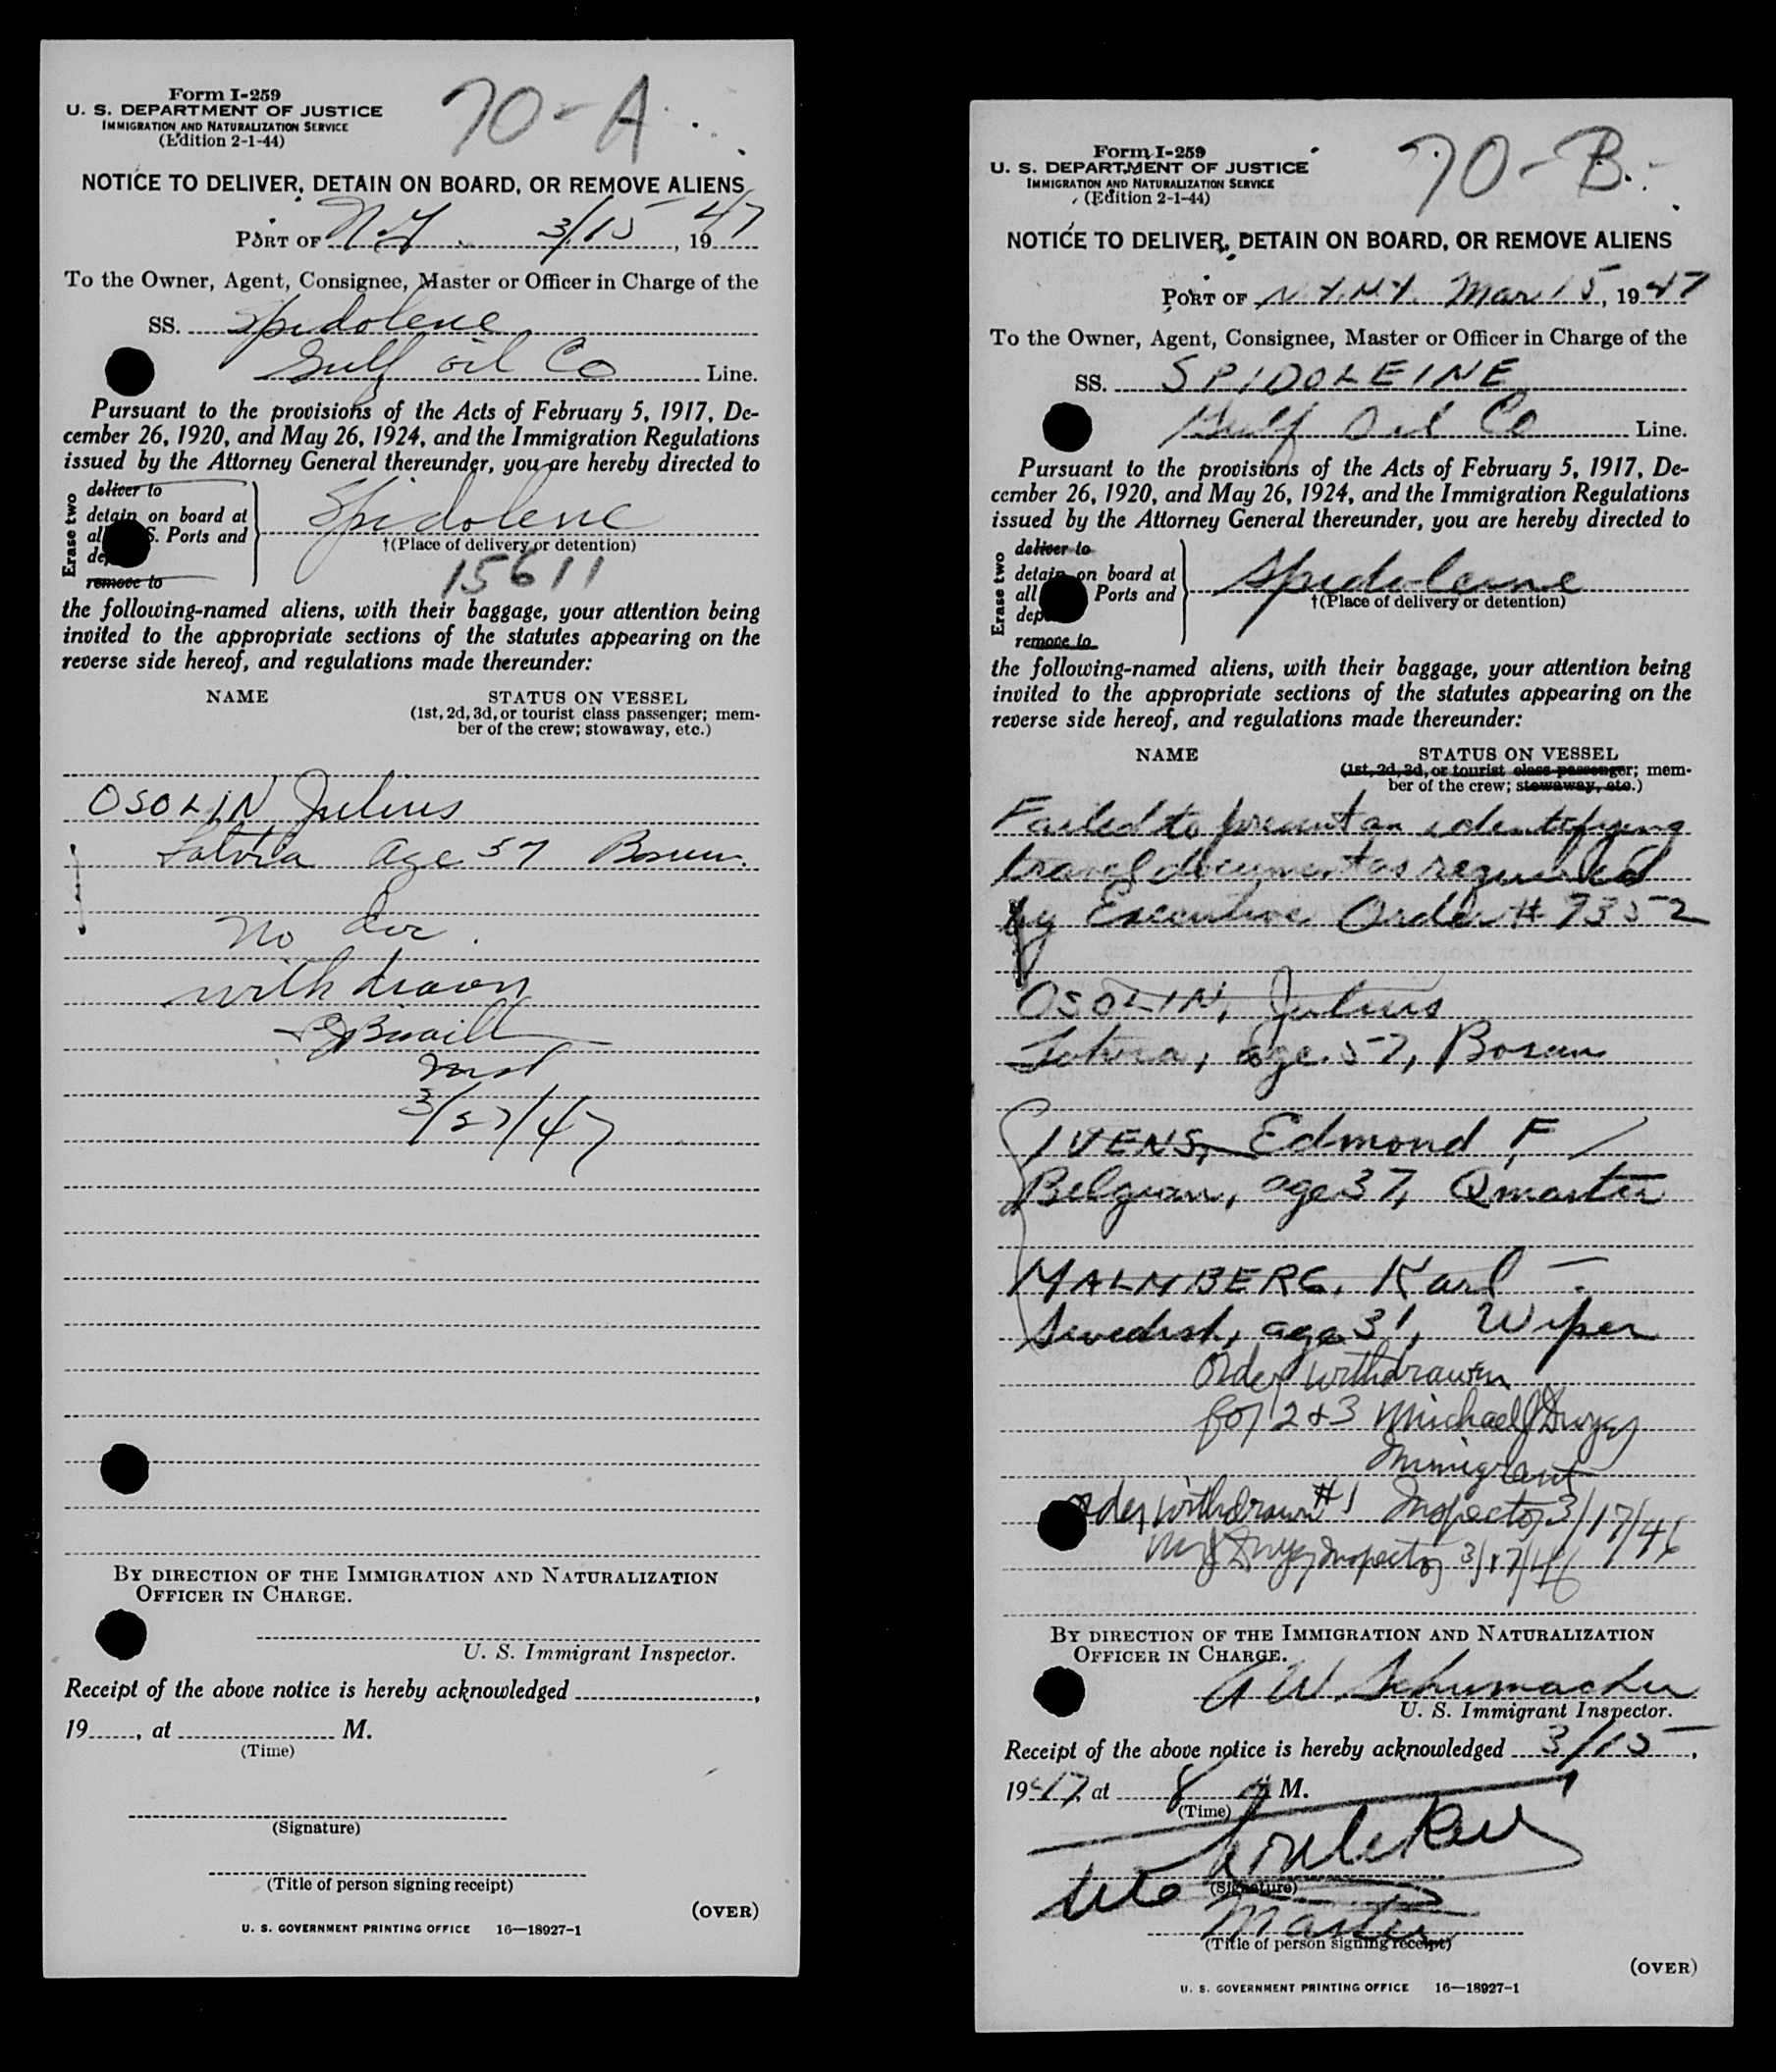 70-A
Form I-259
U. S. DEPARTMENT OF JUSTICE
IMMIGRATION AND NATURALIZATION SERVICE
(Edition 2-1-44)
NOTICE TO DELIVER, DETAIN ON BOARD, OR REMOVE ALIENS
PORT OF N.Y. 3/15, 1947
To the Owner, Agent, Consignee, Master or Officer in Charge of the
SS. Spidolene
Gulf Oil Co Line.
Pursuant to the provisions of the Acts of February 5, 1917, De-
cember 26, 1920, and May 26, 1924, and the Immigration Regulations
issued by the Attorney General thereunder, you are hereby directed to
Erase two
deliver to
detain on board at
S. Ports and
remove to
Spidolene
†(Place of delivery or detention)
15611
the following-named aliens, with their baggage, your attention being
invited to the appropriate sections of the statutes appearing on the
reverse side hereof, and regulations made thereunder:
NAME STATUS ON VESSEL
(1st, 2d, 3d, or tourist class passenger; mem-
ber of the crew; stowaway, etc.)
OSOLIN, Julius
Latvia age 57 Bosun.
No doc.
withdrawn
3/27/47
BY DIRECTION OF THE IMMIGRATION AND NATURALIZATION
OFFICER IN CHARGE.
U. S. Immigrant Inspector.
Receipt of the above notice is hereby acknowledged ,
19 , at M.
(Time)
(Signature)
(Title of person signing receipt)
(OVER)
U. S. GOVERNMENT PRINTING OFFICE 16—18927-1
70-B.
Form I-259
U. S. DEPARTMENT OF JUSTICE
IMMIGRATION AND NATURALIZATION SERVICE
(Edition 2-1-44)
NOTICE TO DELIVER, DETAIN ON BOARD, OR REMOVE ALIENS
PORT OF N.Y.N.Y. Mar 15, 1947
To the Owner, Agent, Consignee, Master or Officer in Charge of the
SS. SPIDOLEINE
Gulf Oil Co Line.
Pursuant to the provisions of the Acts of February 5, 1917, De-
cember 26, 1920, and May 26, 1924, and the Immigration Regulations
issued by the Attorney General thereunder, you are hereby directed to
Erase two
deliver to
detain on board at
all Ports and
remove to
Spidoleine
†(Place of delivery or detention)
the following-named aliens, with their baggage, your attention being
invited to the appropriate sections of the statutes appearing on the
reverse side hereof, and regulations made thereunder:
NAME STATUS ON VESSEL
(1st, 2d, 3d, or tourist class passenger; mem-
ber of the crew; stowaway, etc.)
Failed to present an identifying
travel document as required
by Executive Order # 9352
OSOLIN, Julius
Latvia, age 57, Bosun
IVENS, Edmond F
Belgian, age 37, Qmaster
MALMBERG, Karl
Swedish, age 31, Wiper
Order withdrawn
for 2 & 3 Michael J Dwyer
Immigrant
Order withdrawn #1 Inspector 3/17/46
M J Dwyer Inspector 3/17/46
BY DIRECTION OF THE IMMIGRATION AND NATURALIZATION
OFFICER IN CHARGE.
A W. Schumacher
U. S. Immigrant Inspector.
Receipt of the above notice is hereby acknowledged 3/15,
1947, at 8 A M.
(Time)
(Signature)
Master
(Title of person signing receipt)
(OVER)
U. S. GOVERNMENT PRINTING OFFICE 16—18927-1